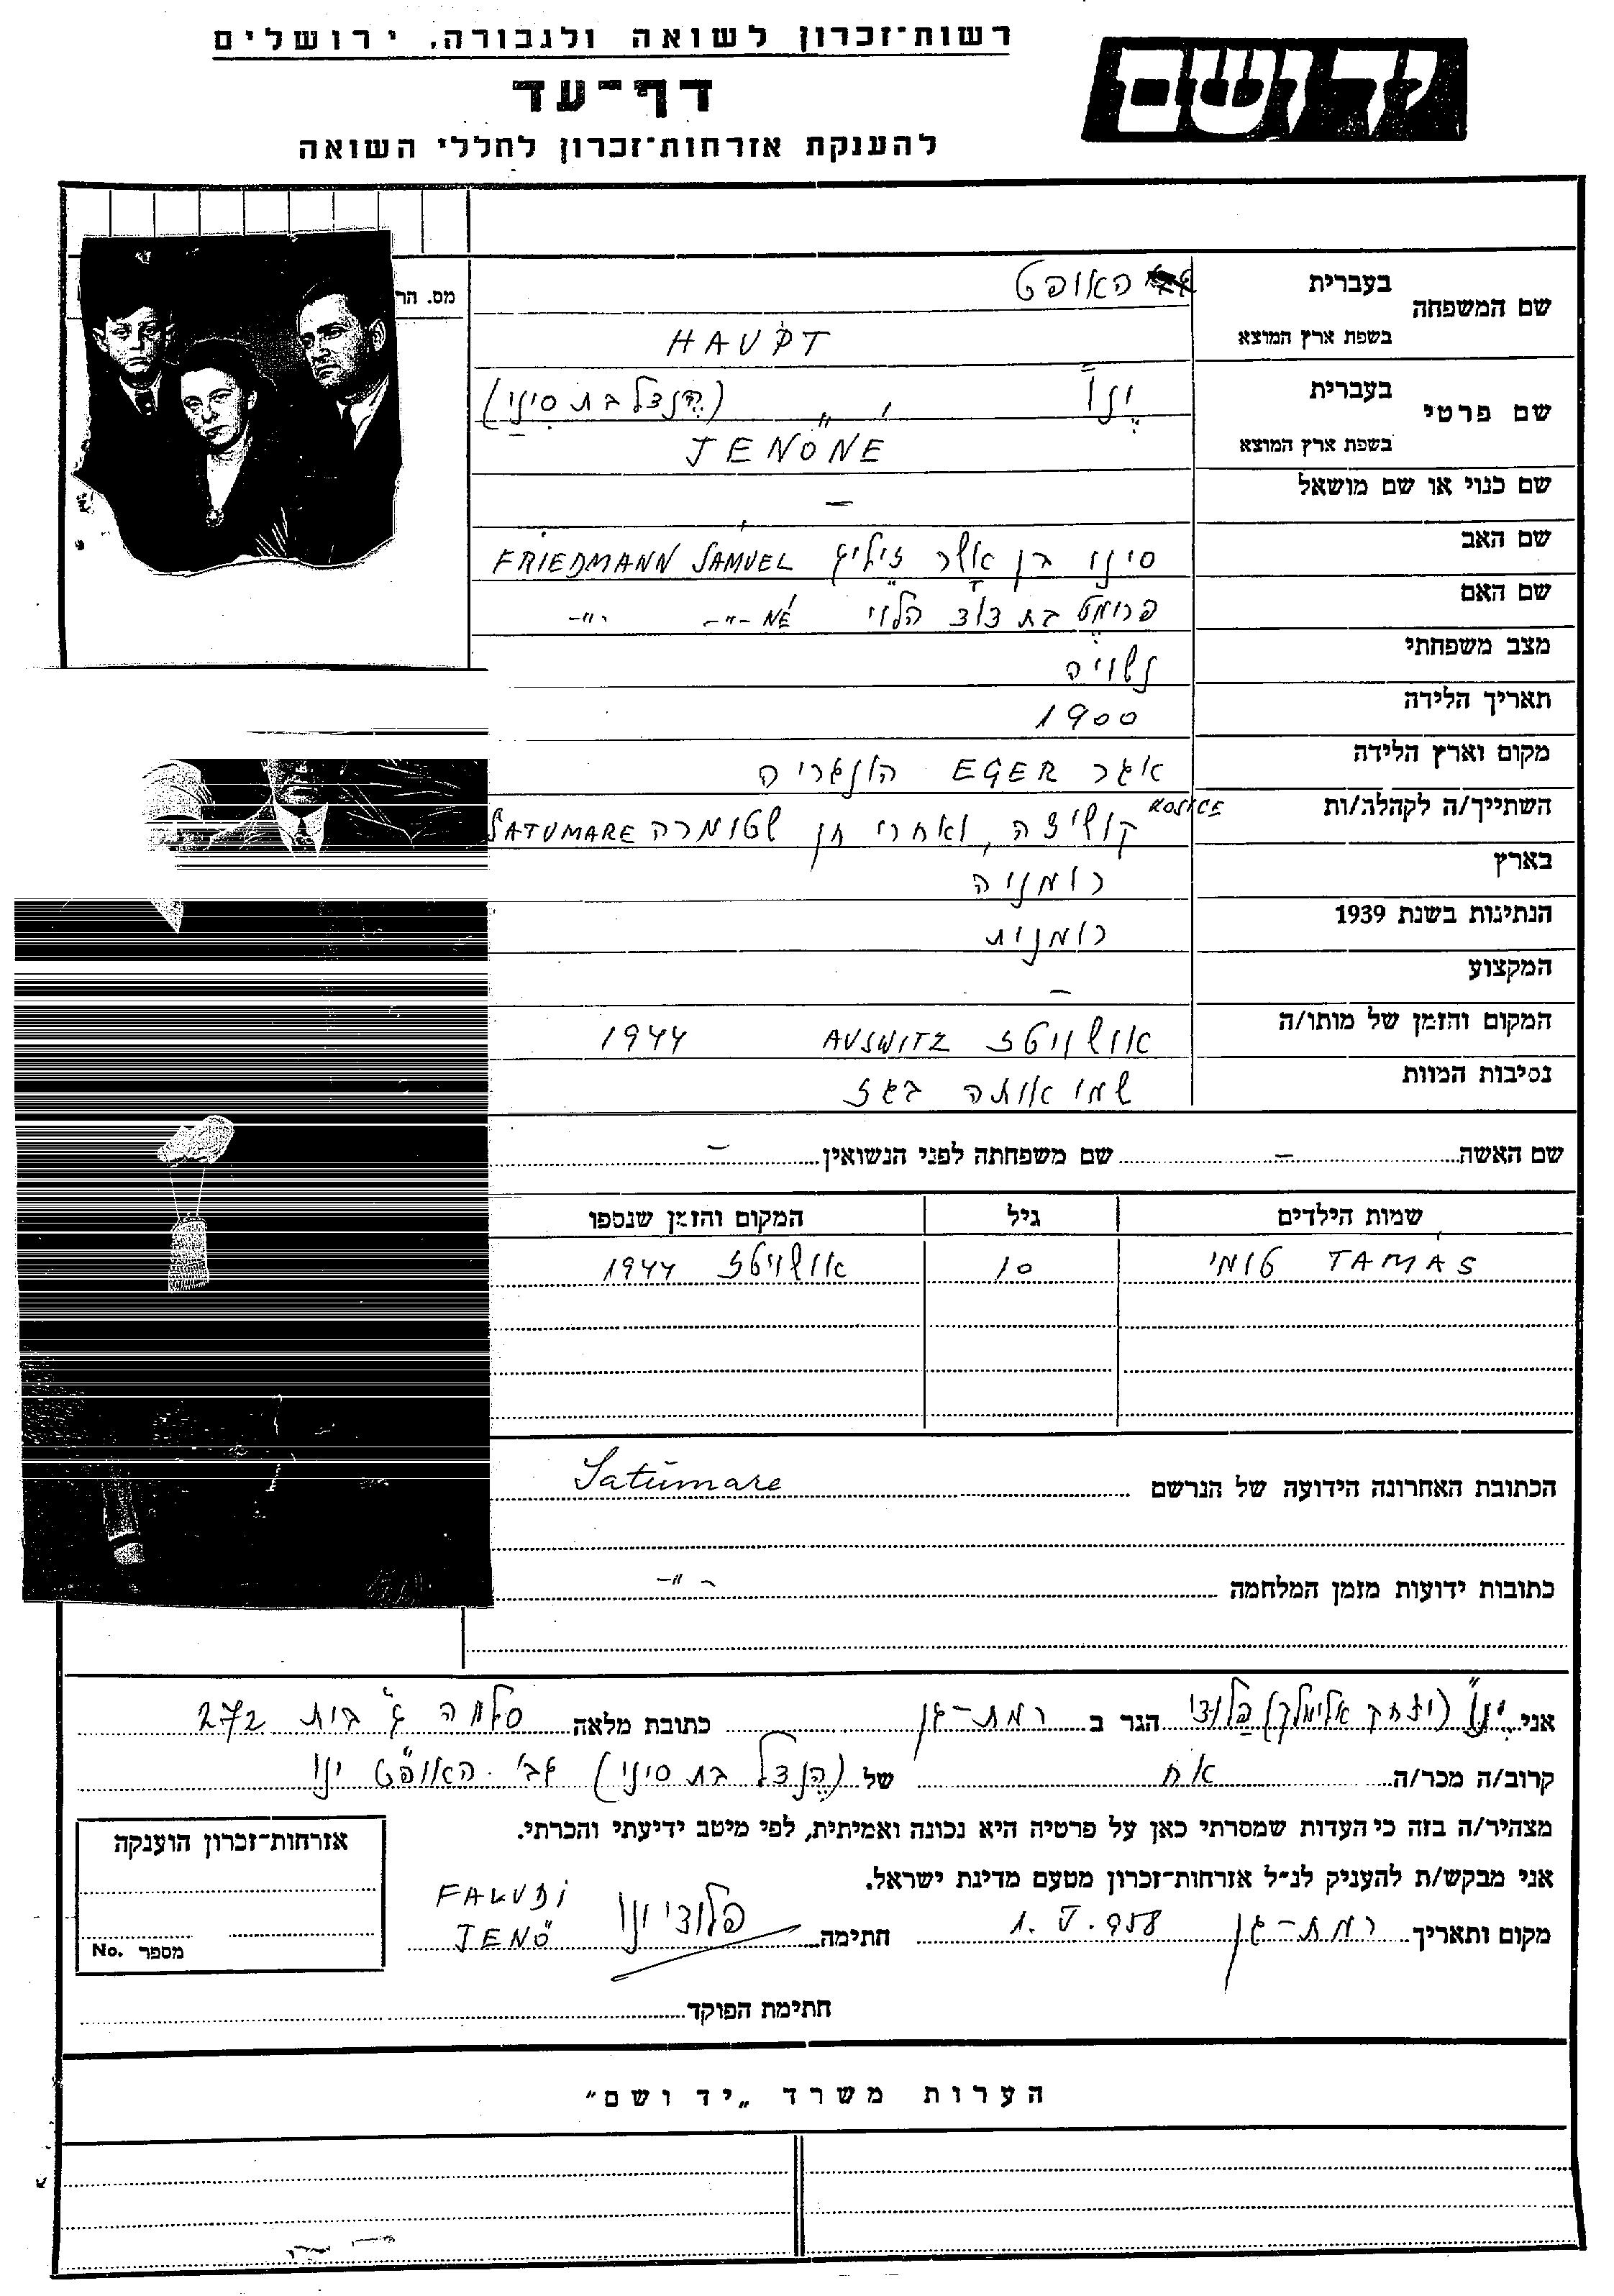 רשות־זכרון לשואה ולגבורה, ירושלים
יד ושם
דף־עד
להענקת אזרחות־זכרון לחללי השואה
מס. הר
שם המשפחה בעברית האופט
בשפת ארץ המוצא HAUPT
שם פרטי בעברית ינו (הנצל בת סיני)
בשפת ארץ המוצא JENŐNÉ
שם כנוי או שם מושאל –
שם האב סיני בן אשר זיליג FRIEDMANN SÁMUEL
שם האם פרומט בת דוד הלוי NÉ -"- -"-
מצב משפחתי נשויה
תאריך הלידה 1900
מקום וארץ הלידה אגר EGER הונגריה
השתייך/ה לקהלה/ות KOSICE קושיצה, ואחרי חן שטומרה SATUMARE
בארץ רומניה
הנתינות בשנת 1939 רומנית
המקצוע –
המקום והזמן של מותו/ה אושויטז AUSWITZ 1944
נסיבות המוות שמו אותה בגז
שם האשה – שם משפחתה לפני הנשואין –
שמות הילדים גיל המקום והזמן שנספו
TAMÁS טומי 10 אושויטז 1944
הכתובת האחרונה הידועה של הנרשם Satumare
כתובות ידועות מזמן המלחמה -"-
אני ינו (יצחק אלימלך) פלודי הגר ב רמת-גן כתובת מלאה סלמה ג' בית 272
קרוב/ה מכר/ה אח של (הנצל בת סיני) גב' האופט ינו
מצהיר/ה בזה כי העדות שמסרתי כאן על פרטיה היא נכונה ואמיתית, לפי מיטב ידיעתי והכרתי.
אני מבקש/ת להעניק לנ״ל אזרחות־זכרון מטעם מדינת ישראל.
מקום ותאריך רמת-גן 1. V. 958 חתימה פלודי ינו FALUDI JENŐ
אזרחות־זכרון הוענקה
מספר No.
חתימת הפוקד
הערות משרד „יד ושם״